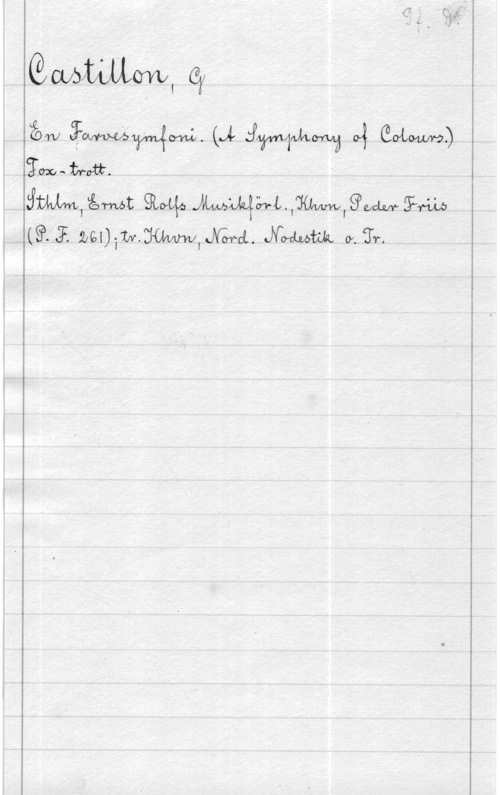 Pf. D.
Castillon, G
En Farvesymfoni. (A Symphony of Colours.)
Fox-trott.
Sthlm, Ernst Rolfs Musikförl., Khvn, Peder Friis
(P. F. 261); tr. Khvn, Nord. Nodestik o. Tr.